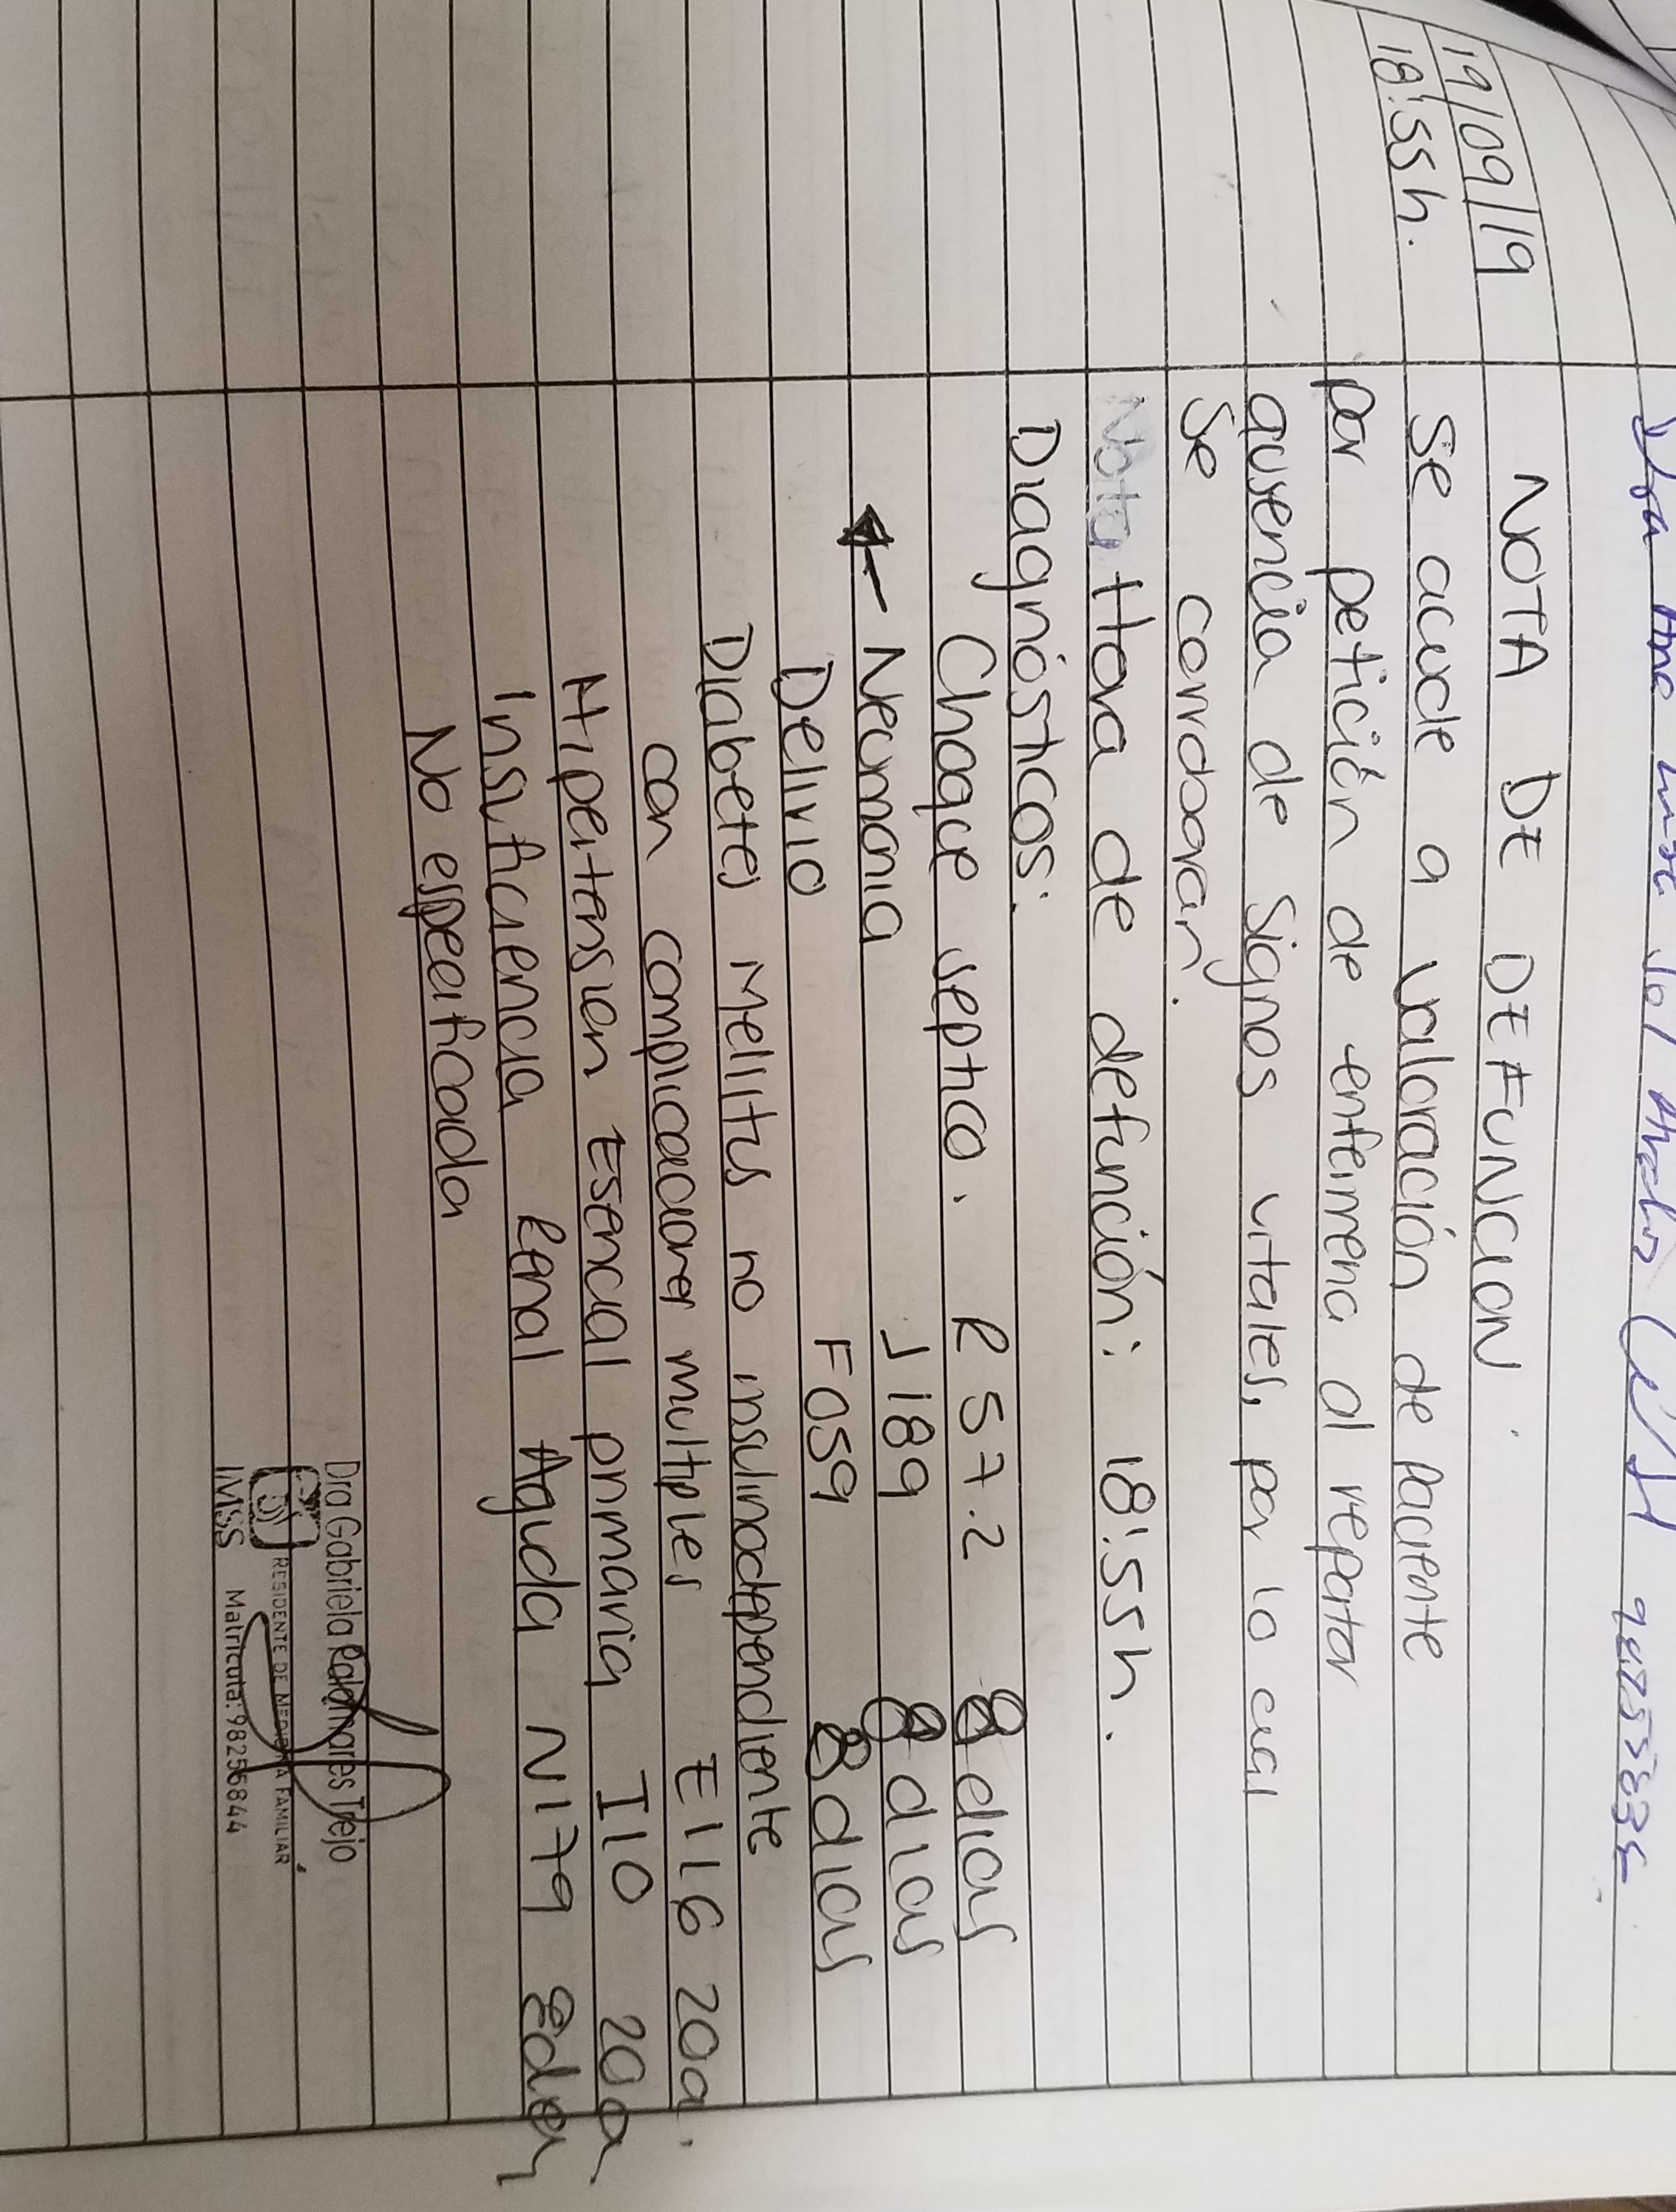 19/09/19
18:55h.
NOTA DE DEFUNCION.
Se acude a valoración de paciente
por petición de enfermeria al reportar
ausencia de signos vitales, por lo cual
se corroboran.
Nota Hora de defunción: 18:55h.
Diagnósticos:
Choque septico. R 57.2 8 dias
← Neumonia J189 8 dias
Delirio F059 8 dias
Diabetes Mellitus no insulinodependiente
con complicaciones multiples E116 20a.
Hipertension Esencial primaria I10 20a
Insuficiencia Renal Aguda N179 8dias
No especificada
Dra Gabriela Palomares Trejo
RESIDENTE DE MEDICINA FAMILIAR
IMSS Matricula: 98256844